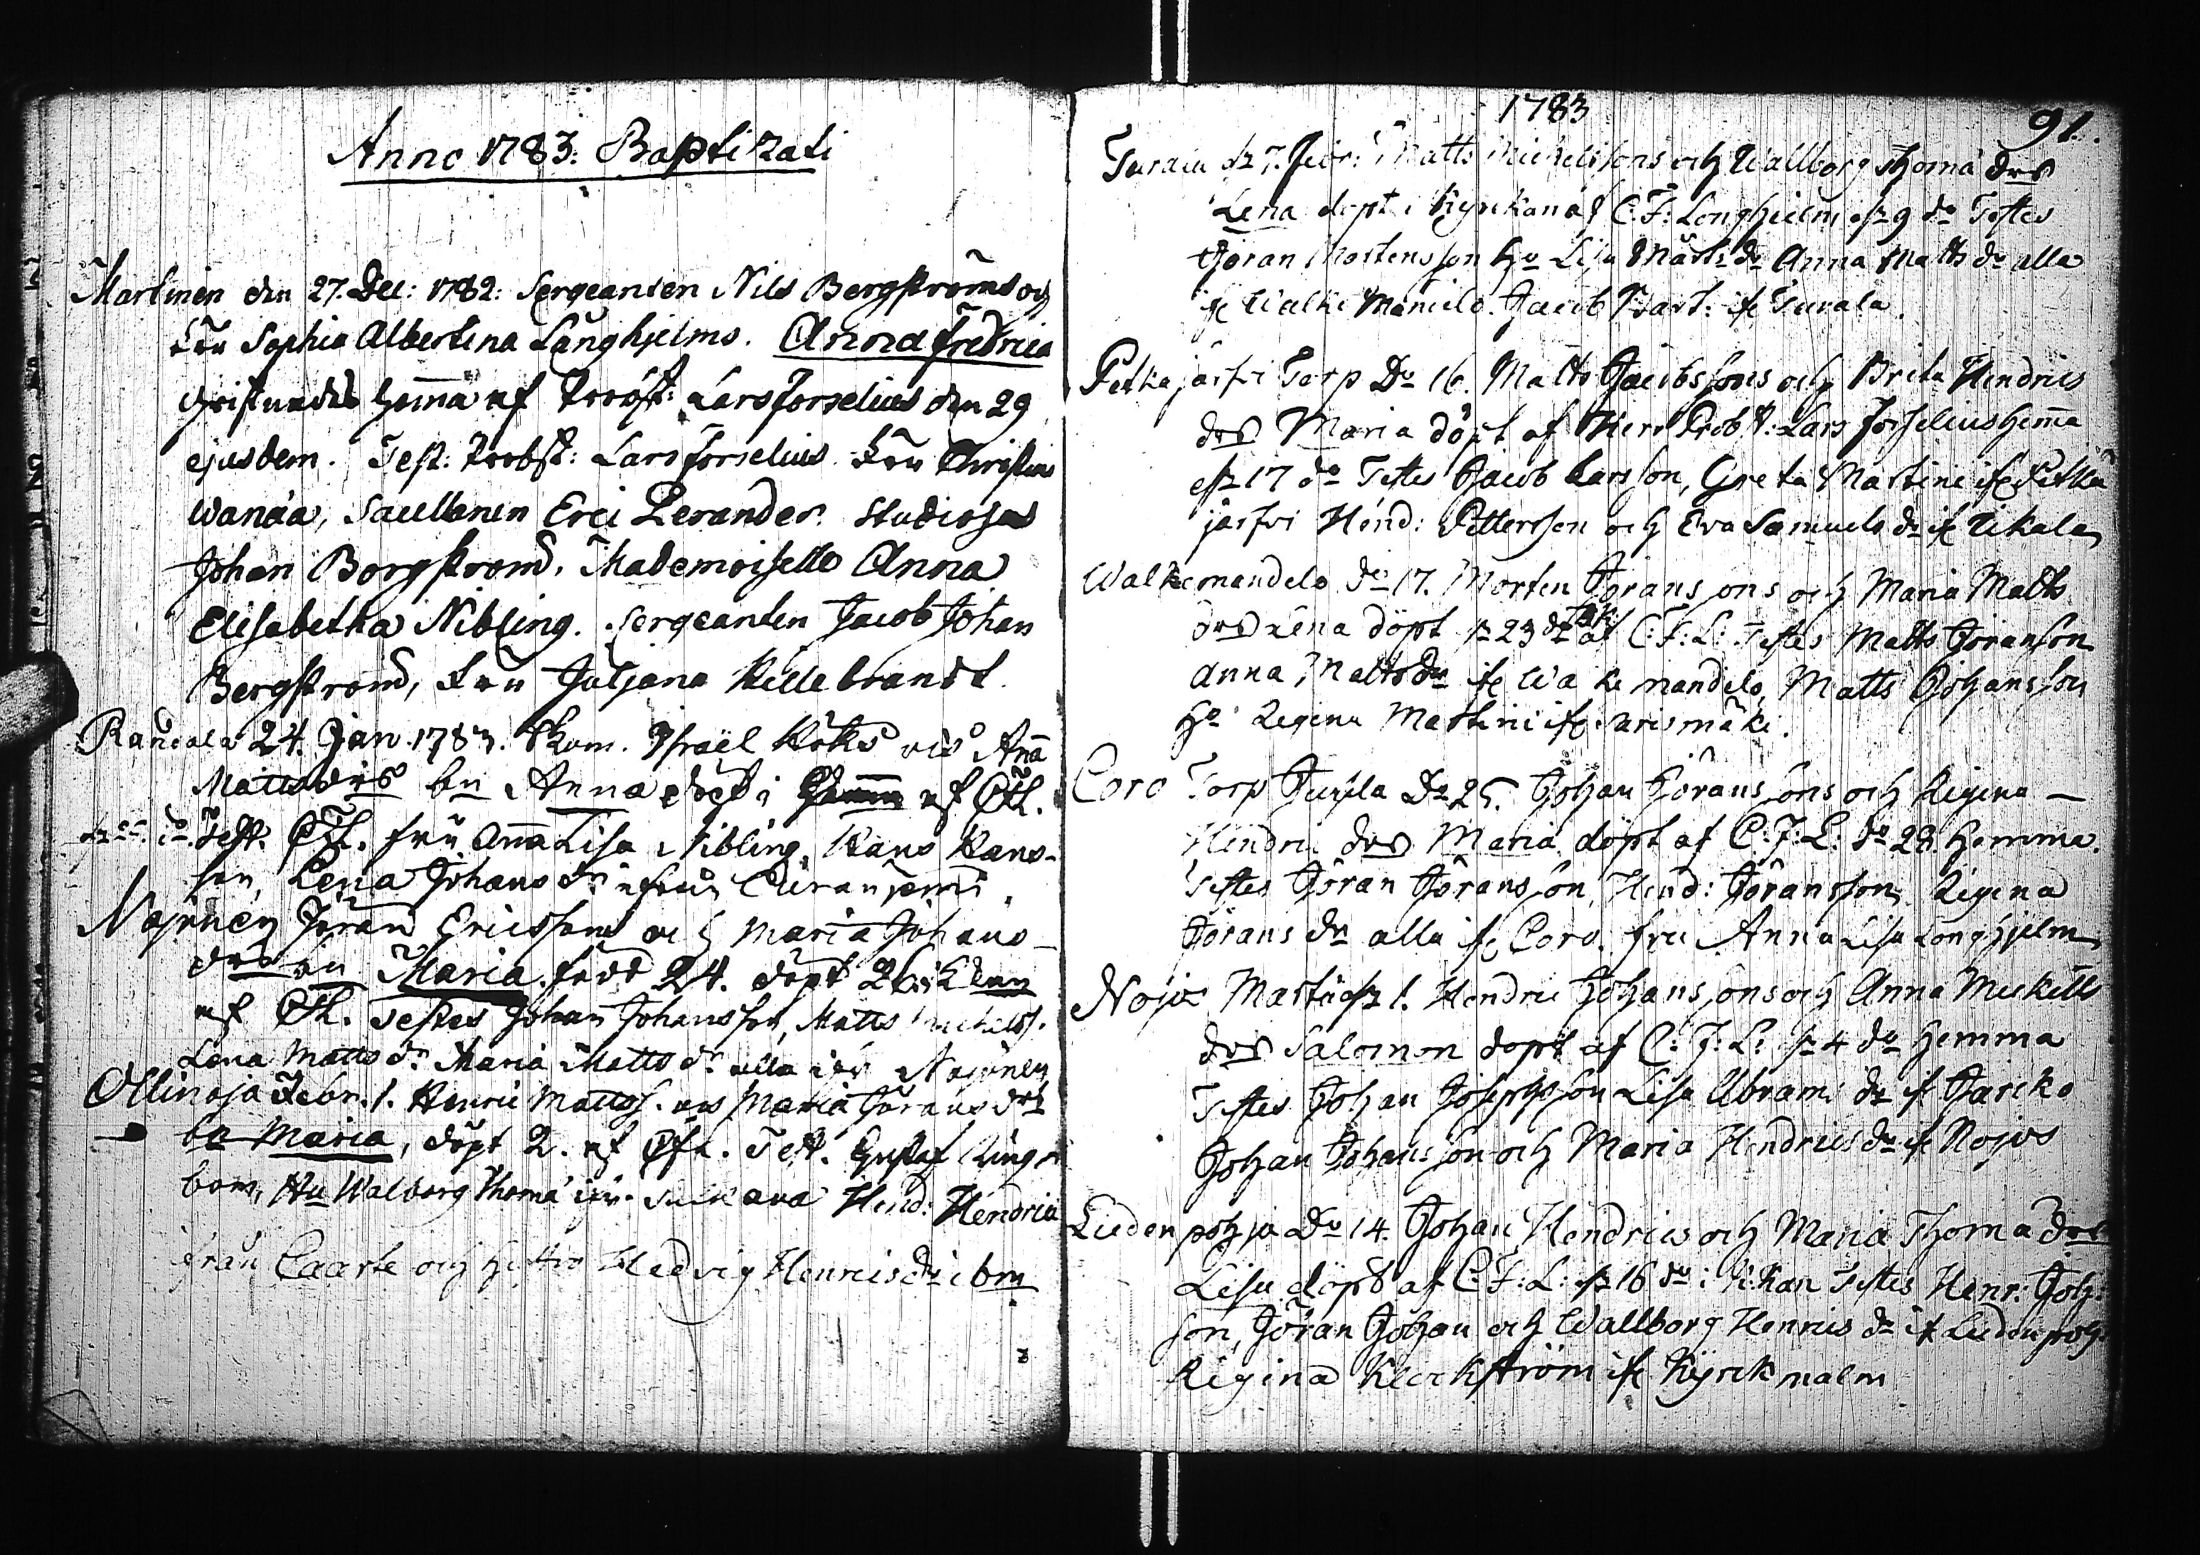 Anno 1783: Baptizati
Martinen den 27. Dec: 1782: Sergeanten Nils Bergströms och
Fru Sophia Albertina Långhjelms. Anna Fredrica
Christnades hema af Probst: Lars Forselius den 29
ejusdem. Test: Probst: Lars Forselius. Fru Christina
Wanaa, Saellanen Erei Lerander. Studiosus
Johan Borgström. Mademoiselle Anna
Elisabetha Nibling. Sergeanten Jacob Johan
Bergström, Fru Juljana Hillebrandt.
Raucala 24. Jan. 1783. Skom. Israel Höks och Ana
Mattsdrs bn Anna döpt i af
Test. fru Ana Lisa Nibling, Hans Hans-
son, Lena Johans dr ifrån
Nojnen Jöran Ericssons och Maria Johans-
drs bn Maria född 24. döpt 26.
af testes Johan Johansson, Matts Michelss.
Lena Matts dr Maria Matts dr alla ifr Nojnen
Ollinoja Febr. 1. Henric Mattss. och Maria Görans drs
bn Maria, döpt 2. af Test. Gustaf Ring
bom, Hu Walborg Thoma ifr Hend: Hendrics
från Caarte och Hedvig Henrics dr ibm
1783
91.
Turala d 7. Febr: Matts Michelssons och Wallborg Thoma drs
Lena döpt i Kyrckan af C: F: Longhielm 9 do Testes
Jöran Mortensson Hu Lisa Mårts dr Anna Matts dr alla
if Walke Jacob Bart: if Turala.
Petkajärfvi Torp Do 16. Matts Jacobssons och Brita Hendrics
drs Maria döpt af Herr Probst: Lars Forselius hema
17 do Testes Jacob Larsson, Greta Martini if Petka
järfvi Hend: Pettersson och Eva Samuels dr if Ukala
Walkemandelo do 17. Morten Jöransons och Maria Matts
drs Lena döpt 23 do af C: F: L: Testes Matts Jöranson
Anna Matts dr if Wa ke mandelo, Matts Johansson
Hu Regina Martini if Sarismäki.
Coro Torp Do 25. Johan Jöransons och Regina
Hendri drs Maria döpt af C: F: L: do 28. Hemma.
Testes Jöran Jöranson, Hend: Jöransson, Regina
Jörans dr alla if Coro. fru Anna Lisa Longhjelm
Nojos Marty 1. Hendric Johansons och Anna Mickels
drs Salomon döpt af C: F: L: 4 do Hemma
Testes Johan Josephsson Lisa Abrams dr if Jarcko
Johan Johansson och Maria Hendrics dr if Nojos
Liedenpohja Do 14. Johan Hendrics och Maria Thoma drs
Lisa döpt af C: F: L: 16 do i Testes Henr: Joh:
son, Jöran Johan och Wallborg Henrics dr if Liedenpohj
Regina Kleckström if Kyrckmalm